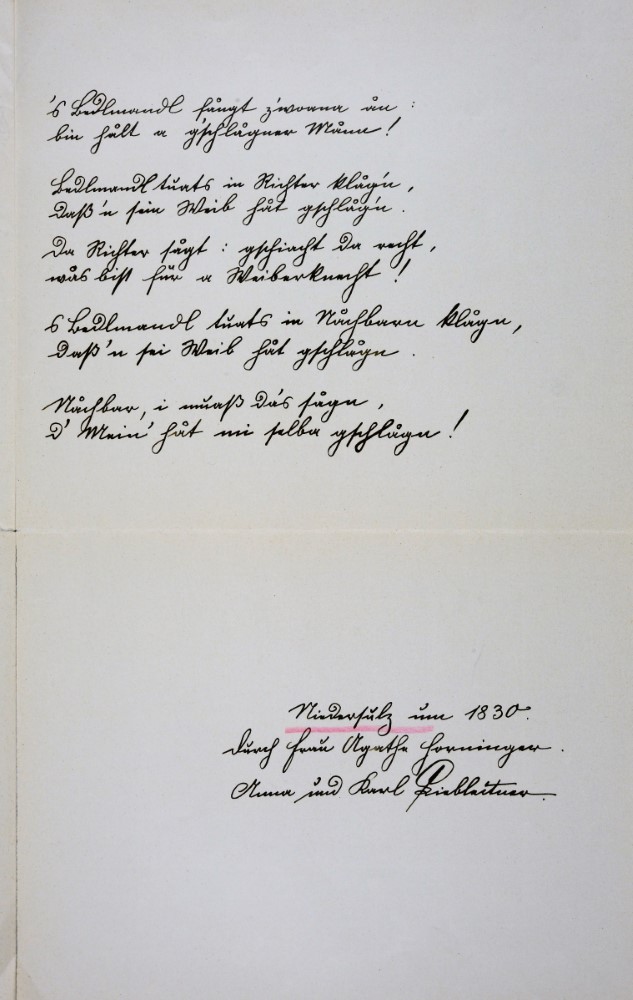 's Bedlmandl fångt z'woana ån :
bin hålt a g'schlågner Månn!
Bedlmandl tuats in Richter klåg'n,
Daß'n sein Weib håt gschlåg'n.
Da Richter sågt : gschiacht da recht,
wås bist für a Weiberknecht!
s Bedlmandl tuats in Nåchbarn klågn,
Daß'n sei Weib håt gschlågn.
Nåchbar, i muaß da's sågn,
D' Mein' håt mi selba gschlågn!
Niedersulz um 1830.
Durch Frau Agathe Horninger.
Anna und Karl Liebleitner.